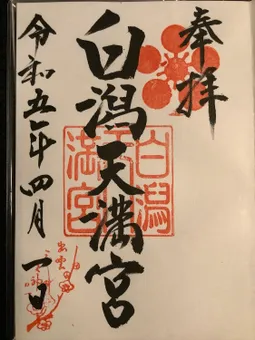 奉拝
白潟天満宮
白潟天満宮
令和五年四月一日